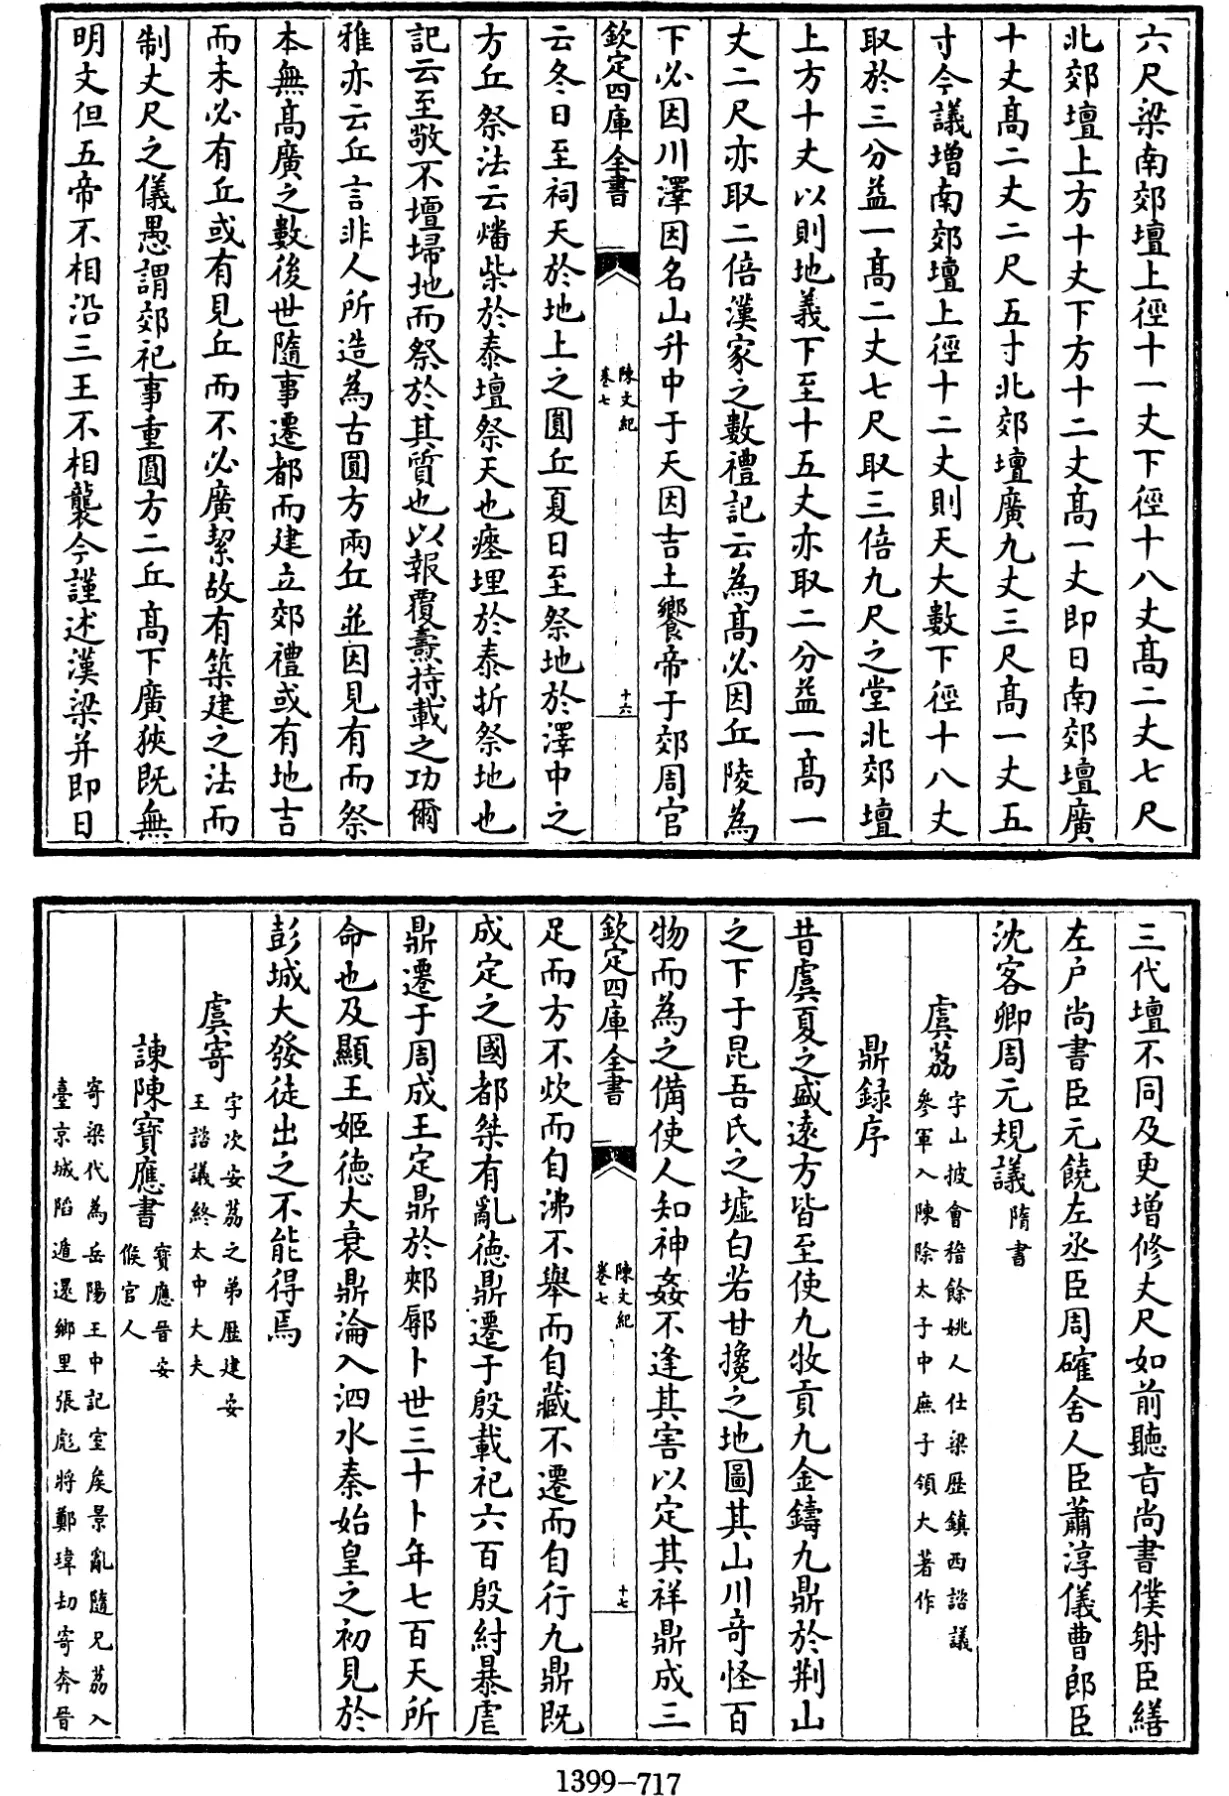 六尺梁南郊壇上徑十一丈下徑十八丈髙二丈七尺
北郊壇上方十丈下方十二丈髙一丈即日南郊壇廣
十丈髙二丈二尺五寸北郊壇廣九丈三尺髙一丈五
寸今議增南郊壇上徑十二丈則天大數下徑十八丈
取於三分益一髙二丈七尺取三倍九尺之堂北郊壇
上方十丈以則地義下至十五丈亦取二分益一髙一
丈二尺亦取二倍漢家之數禮記云為髙必因丘陵為
下必因川澤因名山升中于天因吉土饗帝于郊周官
欽定四庫全書
陳文紀
卷七
十六
云冬日至祠天於地上之圓丘夏日至祭地於澤中之
方丘祭法云燔柴於泰壇祭天也瘞埋於泰折祭地也
記云至敬不壇埽地而祭於其質也以報覆燾持載之功爾
雅亦云丘言非人所造為古圓方兩丘並因見有而祭
本無髙廣之數後世隨事遷都而建立郊禮或有地吉
而未必有丘或有見丘而不必廣絜故有築建之法而
制丈尺之儀愚謂郊祀事重圓方二丘髙下廣狹既無
明文但五帝不相沿三王不相襲今謹述漢梁并即日
三代壇不同及更增修丈尺如前聽旨尚書僕射臣繕
左户尚書臣元饒左丞臣周確舍人臣蕭淳儀曹郎臣
沈客卿周元規議 隋書
虞荔 字山披會稽餘姚人仕梁歴鎮西諮議
參軍入陳除太子中庶子領大著作
鼎録序
昔虞夏之盛遠方皆至使九牧貢九金鑄九鼎於荆山
之下于昆吾氏之墟白若甘攙之地圖其山川奇怪百
物而為之備使人知神姦不逢其害以定其祥鼎成三
欽定四庫全書
陳文紀
卷七
十七
足而方不炊而自沸不舉而自藏不遷而自行九鼎既
成定之國都桀有亂德鼎遷于殷載祀六百殷紂暴虐
鼎遷于周成王定鼎於郟鄏卜世三十卜年七百天所
命也及顯王姬德大衰鼎淪入泗水秦始皇之初見於
彭城大發徒出之不能得焉
虞寄 字次安荔之弟歴建安
王諮議終太中大夫
諫陳寳應書 寳應晉安
候官人
寄梁代為岳陽王中記室矦景亂隨兄荔入
臺京城陷遁還鄉里張彪將鄭瑋刼寄奔晉
1399-717